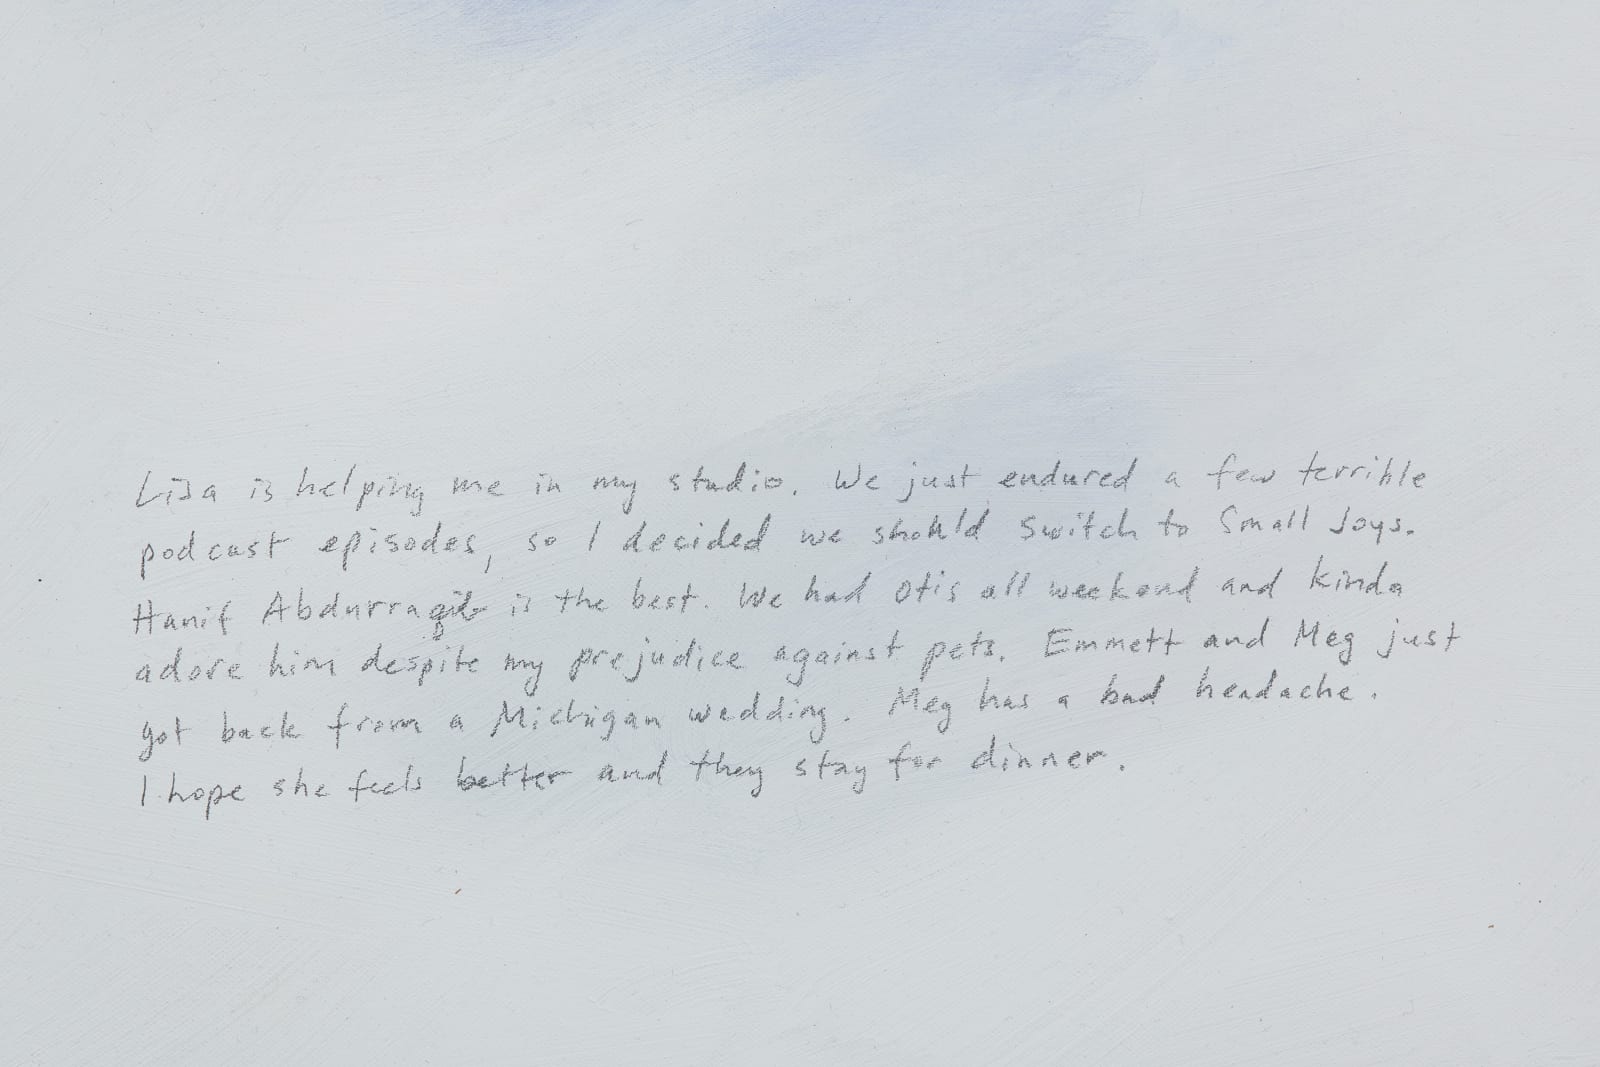 Lisa is helping me in my studio. We just endured a few terrible
podcast episodes, so I decided we should switch to Small Joys.
Hanif Abdurraqib is the best. We had Otis all weekend and kinda
adore him despite my prejudice against pets. Emmett and Meg just
got back from a Michigan wedding. Meg has a bad headache.
I hope she feels better and they stay for dinner.